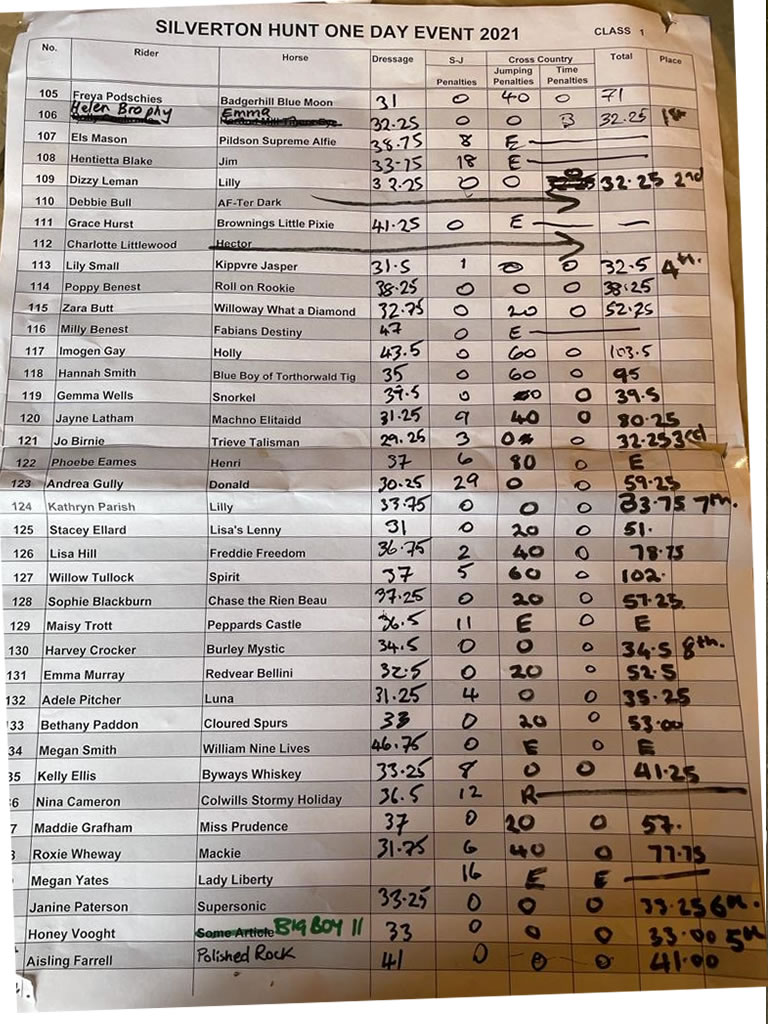 SILVERTON HUNT ONE DAY EVENT 2021 CLASS 1
No. Rider Horse Dressage S-J Cross Country Total Place
Penalties Jumping Penalties Time Penalties
105 Freya Podschies Badgerhill Blue Moon 31 0 40 0 71
106 Helen Brophy Emma 32.25 0 0 32.25 1st
107 Els Mason Pildson Supreme Alfie 38.75 8 E
108 Hentietta Blake Jim 33-75 18 E
109 Dizzy Leman Lilly 32.25 0 0 0 32.25 2nd
110 Debbie Bull AF-Ter Dark
111 Grace Hurst Brownings Little Pixie 41.25 0 E
112 Charlotte Littlewood Hector
113 Lily Small Kippvre Jasper 31.5 1 0 0 32.5 4th.
114 Poppy Benest Roll on Rookie 38.25 0 0 0 38.25
115 Zara Butt Willoway What a Diamond 32.75 0 20 0 52.75
116 Milly Benest Fabians Destiny 47 0 E
117 Imogen Gay Holly 43.5 0 60 0 103.5
118 Hannah Smith Blue Boy of Torthorwald Tig 35 0 60 0 95
119 Gemma Wells Snorkel 39.5 0 0 0 39.5
120 Jayne Latham Machno Elitaidd 31.25 9 40 0 80.25
121 Jo Birnie Trieve Talisman 29.25 3 0 0 32.25 3rd
122 Phoebe Eames Henri 37 6 80 0 E
123 Andrea Gully Donald 30.25 29 0 0 59.25
124 Kathryn Parish Lilly 33.75 0 0 0 33.75 7th.
125 Stacey Ellard Lisa's Lenny 31 0 20 0 51.
126 Lisa Hill Freddie Freedom 36.75 2 40 0 78.75
127 Willow Tullock Spirit 37 5 60 0 102.
128 Sophie Blackburn Chase the Rien Beau 37.25 0 20 0 57.25
129 Maisy Trott Peppards Castle 36.5 11 E 0 E
130 Harvey Crocker Burley Mystic 34.5 0 0 0 34.5 8th.
131 Emma Murray Redvear Bellini 32.5 0 20 0 52.5
132 Adele Pitcher Luna 31.25 4 0 0 35.25
33 Bethany Paddon Cloured Spurs 33 0 20 0 53.00
34 Megan Smith William Nine Lives 46.75 0 E 0 E
35 Kelly Ellis Byways Whiskey 33.25 8 0 0 41.25
6 Nina Cameron Colwills Stormy Holiday 36.5 12 R
7 Maddie Grafham Miss Prudence 37 0 20 0 57.
Roxie Wheway Mackie 31.75 6 40 0 77.75
Megan Yates Lady Liberty 16 E E
Janine Paterson Supersonic 33.25 0 0 0 33.25 6th.
Honey Vooght Some Article BIG BOY 11 33 0 0 0 33.00 5th
Aisling Farrell Polished Rock 41 0 0 0 41.00